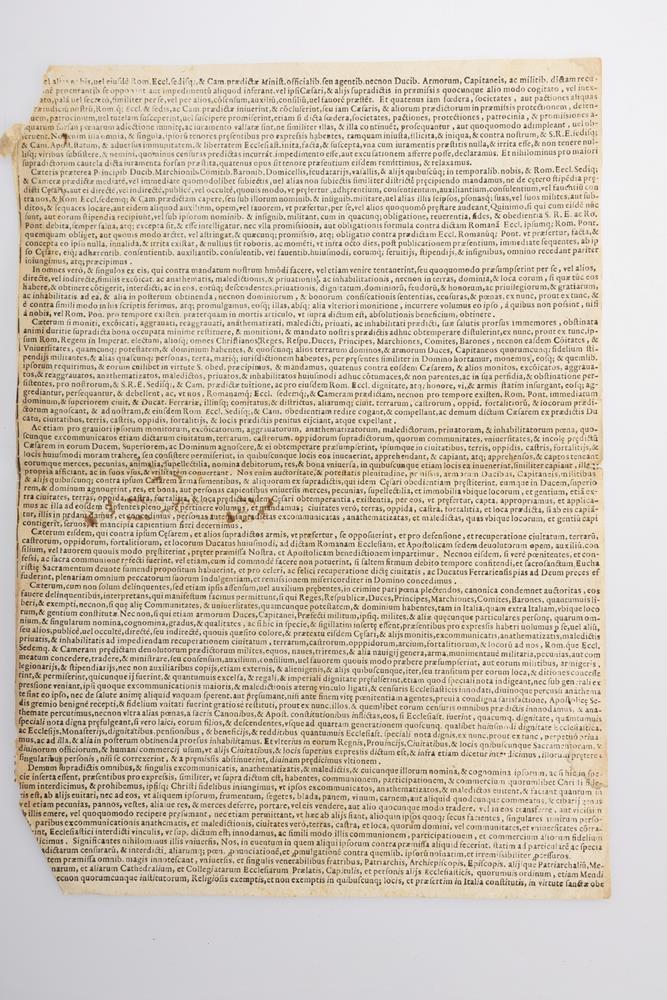 uel alias nobis, uel eiusdē Rom. Eccl. sedisq;, & Cam. prædictæ Minist. officialib. seu agentib. necnon Ducib. Armorum, Capitaneis, ac militib. dictam recu-
procurantib. se opponant aut impedimentū aliquod inferant. vel ipsi Cæsari, & alijs supradictis in præmissis quocunque alio modo cogitato, vel inex-
palā uel secreto, similiter per se, vel per alios, cōsensum, auxiliū, consiliū, uel fauorē præstēt. Et quatenus iam fœdera, societates, aut pactiones aliquas
præiudiciū nostrū, Rom. q; Eccl. & sedis, ac Cam. prædictæ iniuerint, & cōcluserint, seu iam Cæsaris, & aliorum prædictorum in præmissis protectionem, deten-
patrocinium, uel tutelam susceperint, uel suscipere promiserint, etiam si dicta fœdera, societates, pactiones, protectiones, patrocinia, & promissiones a-
quarum earum adiectione munitę, ac iuramento vallatæ sint, ne similiter illas, & illa continuēt, prosequantur, aut quoquomodo adimpleant, uel ob-
seruent. Nos enim illa omnia, & singula, ipsorū tenores præsentibus pro expressis habentes, tamquam iniusta, illicita, & iniqua, & contra nostrum, & S. R. E. sedisq;
& Cam. Apost. statum, & aduersus immunitatem, & libertatem Ecclesiast. inita, facta, & suscepta, vna cum iuramentis præstitis nulla, & irrita esse, & non tenere nul-
lisq; viribus subsistere, & nemini, quominus censuras predictas incurrat. impedimento esse, aut excusationem afferre posse, declaramus. Et nihilominus pro maiori
supradictorum cautela dicta iuramenta forsan præstita, quatenus opus sit tenore præsentium eisdem remittimus, & relaxamus.
Cæteris præterea Principib Ducib. Marchionib. Comitib. Baronib. Domicellis, feudatarijs, vasallis, & alijs quibuscūq; in temporalib. nobis, & Rom. Eccl. Sediq;
& Cameræ prædictæ mediatè, vel immediatè quomodolibet subiectis, uel alias non subiectis similiter districtè præcipiendo mandamus, ne de cętero stipēdia prę-
dicti Cęsaris, aut ei directè, vel indirectè, publicè, vel occultè, quouis modo, vt prefertur, adhærentium, consentientium, auxiliantium, consulentium, vel fauentiū con
tra nos, & Rom. Eccl. sedemq; & Cam. prædictam capere, seu sub illorum nominib. & insignib. militare, uel alias illis seipsos, personasq; suas, vel suos milites, aut sub-
ditos, & sequaces locare, aut eidem aliquod auxilium, opem, vel fauorem, vt præfertur, per se, vel alios quoquomodo prestare audeant, Quinimo, si qui cum eisdē nūc
sunt, aut eorum stipendia recipiunt, vel sub ipsorum nominib. & insignib. militant, cum in quacunq; obligatione, reuerentia, fides, & obedientia S. R. E. ac Ro.
Pont. debita, semper salua, atq; excepta sit, & esse intelligatur, nec vlla promissionis, aut obligationis formula contra dictam Romanā Eccl. ipsumq; Rom. Pont.
quemquam obliget, aut quouis modo arctet, vel astringat, & quacunq; promissio, atq; obligatio contra prædictam Eccl. Romanūq; Pont. vt præfertur, facta, &
concepta eo ipso nulla, inualida, & irrita existat, & nullius sit roboris, ac momēti, vt infra octo dies, post publicationem præsentium, immediatè sequentes, ab ip
so Cęsare, eiq; adhærentib. consentientib. auxiliantib. consulentib. vel fauentib. huiusmodi, eorumq; seruitijs, stipendijs, & insignibus, omnino recedant pariter
iniungimus, atq; præcipimus.
In omnes verò, & singulos ex eis, qui contra mandatum nostrum hmōdi facere, vel etiam venire tentauerint, seu quoquomodo præsumpserint per se, vel alios,
directè, vel indirectè, similis excōicat. ac anathematis, maledictionis, & priuationis, ac inhabilitationis, necnon in terras, dominia, & loca eorum, si quæ tūc eos
habere, & obtinere cōtigerit, interdicti, ac in eas, eorūq; descendentes, priuationis, dignitatum, dominiorū, feudorū, & honorum, ac priuilegiorum, & gratiarum,
ac inhabilitatis ad ea, & alia in posterum obtinenda, necnon dominiorum, & bonorum confiscationis sententias, censuras, & pœnas, ex nunc, prout ex tunc, &
è contra simili modo in his scriptis ferimus, atq; promulgamus, eosq; illas, absq; alia vlteriori monitione, incurrere volumus eo ipso, à quibus non possint, nisi
à nobis, vel Rom. Pon. pro tempore existen. præterquam in mortis articulo, vt supra dictum est, absolutionis beneficium, obtinere.
Cæterum si moniti, excoicati, aggrauati, reaggrauati, anathematizati, maledicti, priuati, ac inhabilitati prædicti, suæ salutis prorsus immemores, obstinata
animi duritie supradicta bona occupata minime restituere, & monitioni, & mandato nostri prædictis adhuc obtemperare distulerint, ex nunc, prout ex tunc, ip-
sum Rom. Regem in Imperat. electum, aliosq; omnes Christianosq; Reges, Respu. Duces, Principes, Marchiones, Comites, Barones, necnon easdē Cōitates, &
Vniuersitates, quamcunq; potestatem, & dominium habentes, & quoscunq; alios terrarum dominos, & armorum Duces, Capitaneos quorumcunq; fidelium sti-
pendijs militantes, & alias quascunq; personas, terra, mariq; iurisdictionem habentes, per præsentes similiter in Domino hortamur, monemus, eosq; & quemlib.
ipsorum requirimus, & eorum cuilibet in virtute S. obed. præcipimus, & mandamus, quatenus contra eosdem Cæsarem, & alios monitos, excōicatos, aggraua-
tos, & reaggrauatos, anathematizatos, maledictos, priuatos, & inhabilitatos huiusmodi adhuc cōtumaces, & non parentes, ac in sua perfidia, & obstinatione per-
sistentes, pro nostrorum, & S. R. E. Sedisq;, & Cam. prædictæ tuitione, ac pro eiusdem Rom. Eccl. dignitate, atq; honore, vi, & armis statim insurgant, eosq; ag-
grediantur, persequantur, & debellent, ac, vt nos, Romanamq; Eccl. Sedemq;, & Cameram prædictam, necnon pro tempore existen. Rom. Pont. immediatum
dominum, & superiorem ciuit. & Ducat. Ferrariæ, illiusq; comitatus, & districtus, aliarumq; ciuit. terrarum, castrorum, oppid. fortalitiorū, & locorum prædi-
ctorum agnoscant, & ad nostram, & eiusdem Rom. Eccl. Sedisq;, & Cam. obedientiam redire cogant, & compellant, ac demum dictum Cæsarem ex prædictis Du
catu, ciuitatibus, terris, castris, oppidis, fortalitijs, & locis prædictis penitus eijciant, atque expellant.
Ac etiam pro grauiori ipsorum monitorum, excōicatorum, aggrauatorum, anathematizatorum, maledictorum, priuatorum, & inhabilitatorum pœna, quo-
scunque excommunicatos etiam dictarum ciuitatum, terrarum, castrorum, oppidorum supradictorum, quorum communitates, vniuersitates, & incolę prędictā
Cæsarem aduersus nos recipere, ac Dominum agnoscere, & ei obtemperare præsumpserint, ipsumque in ciuitatibus, terris, oppidis, castris, fortalitijs, &
locis huiusmodi moram trahere, seu consistere permiserint, in quibuscunque locis eos inuenerint, apprehendant, & capiant, atq; apprehensos, & captos teneant
eorumque merces, pecunias, animalia, supellectilia, nomina debitorum, res, & bona vniuersa, in quibuscunque etiam locis ea inuenerint, similiter capiant, illaq;
propria afficiant, ac in suos vsus, & vtilitatem conuertant. Nos enim auctoritate, & potestatis plenitudine, præmissis, armorum Ducibus, Capitaneis, militibus
& alijs quibuscunq; contra ipsum Cæsarem arma sumentibus, & aliquos ex supradictis, qui idem Cęsari obedientiam præstiterint, eumque in Ducem, superio
rem, & dominum agnouerint, res, et bona, aut personas capientibus vniuersas merces, pecunias, supellectilia, et immobilia vbique locorum, et gentium, etiā ex-
tra ciuitates, terras, oppida, castra, fortalitia, & loca prædicta eidem Cęsari obtemperantia, existentia, per eos, vt prefertur, capta, appropriamus, et applica-
mus ac illa ad eosdem capientes pleno iure pertinere volumus, et mandamus; ciuitates verò, terras, oppida, castra, fortalitia, et loca prædicta, si ab eis capiā-
tur, illis in prædam damus, et concedimus, personas autem supradictas excommunicatos, anathematizatos, et maledictas, quas vbique locorum, et gentiū capi
contigerit, seruos, et mancipia capientium fieri decernimus.
Cæterum eisdem, qui contra ipsum Cęsarem, et alios supradictos armis, vt præfertur, se opposuerint, et pro defensione, et recuperatione ciuitatum, terrarū,
castrorum, oppidorum, fortalitiorum, et locorum Ducatus huiusmodi, ac dictam Romanam Ecclesiam, et Apostolicam sedem deuolutorum opem, auxiliū, con
silium, vel fauorem quouis modo præstiterint, præter præmissa Nostra, et Apostolicam benedictionem impartimur. Necnon eisdem, si verè pœnitentes, et con-
fessi, ac sacra communione refecti fuerint, vel etiam, cum id commodè facere non potuerint, si saltem firmum debito tempore confitendi, et sacrosanctum Eucha
ristię Sacramentum deuotè sumendi propositum habuerint, et pro celeri, ac felici recuperatione dictę ciuitatis, ac Ducatus Ferrariensis pias ad Deum preces ef
fuderint, plenariam omnium peccatorum suorum indulgentiam, et remissionem misericorditer in Domino concedimus.
Cæterum, cum non solum delinquentes, sed etiam ipsis assensum, uel auxilium prębentes, in crimine pari pœna plectendos, canonica condemnet auctoritas, eos
fauere delinquentibus, interpretans, qui manifestum facinus permittunt, si qui Reges, Respublicæ, Duces, Principes, Marchiones, Comites, Barones, quarumuis li-
beri, & exempti, necnon, si quę alię Communitates, & uniuersitates, quamcunque potestatem, & dominium habentes, tam in Italia, quam extra Italiam, vbique loco
rum, & gentium constitutæ Nec non, si qui etiam armorum Duces, Capitanei, Præfecti militum, ipsiq. milites, & aliæ quęcunque particulares personę, quarum om-
nium, & singularum nomina, cognomina, gradus, & qualitates, ac si hic in specie, & sigillatim insertę essent, præsentibus pro expressis haberi volumus per se, uel aliū,
seu alios, publicè, uel occultè, directè, seu indirectè, quouis quæsito colore, & prætextu eisdem Cęsari, & alijs monitis, excommunicatis, anathematizatis, maledictis
priuatis, & inhabilitatis ad impediendam recuperationem ciuitatum, terrarum, castrorum, oppidorum, arcium, fortalitiorum, & locorū ad nos, Rom. que Eccl.
Sedemq. & Cameram prędictam deuolutorum prædictorum milites, equos, naues, triremes, & alia nauigij genera, arma, munimenta uè militaria, pecunias, aut com
meatum concedere, tradere, & ministrare, seu consensum, auxilium, consilium, uel fauorem quouis modo præbere præsumpserint, aut eorum militibus, armigeris,
legionarijs, & stipendiarijs, nec non auxiliaribus copijs, etiam externis, & alienigenis, & alijs quibuscunque, iter, seu transitum per eorum loca, & ditiones concesse
rint, & permiserint, quicunque ij fuerint, & quantumuis excelsa, & regali, & imperiali dignitate præfulserint, etiam quod speciali nota indigeant, nec sub generali ex
pressione veniant, ipsi quoque excommunicationis maioris, & maledictionis æternę vinculo ligati, & censuris Ecclesiasticis innodati, diuinoque percussi anathema
te sint eo ipso, nec de salute animę aliquid vnquam sperent, aut præsumant, nisi ante finem vitę pœnitentiam agentes, preuia condigna satisfactione, Apostolicę Se-
dis gremio benignè recepti, & fidelium vnitati fuerint gratiosè restituti, prout ex nunc, illos, & quemlibet eorum censuris omnibus supradictis innodamus, & ana-
themate percutimus, necnon vltra alias pœnas, à sacris Canonibus, & Apost. constitutionibus inflictas, eos, si Ecclesiast. fuerint, quacunq. dignitate, quantumuis
speciali nota digna, præfulgentes, si verò laici, eorum filios, & descendentes, vsque ad quartam generationem quoscunq. qualibet huiusmodi dignitate Ecclesiastica,
ac Ecclesijs, Monasterijs, dignitatibus, pensionibus, & beneficijs, & redditibus quantumuis Ecclesiast. speciali nota dignis, ex nunc, prout ex tunc, perpetuò priua
mus, ac ad illa, & alia in posterum obtinenda prorsus inhabilitamus. Et vlterius in eorum Regnis, Prouincijs, Ciuitatibus, & locis quibuscunque Sacramentorum, &
diuinorum officiorum, & humani commercij usum, vt alijs Ciuitatibus, & locis superius expressis dictum est, & infra etiam dicetur interdicimus, illorumque præterea
singularibus personis, nisi se correxerint, & à pręmissis abstinuerint, diuinam prædicimus vltionem.
Demum supradictis omnibus, & singulis excommunicatis, anathematizatis, & maledictis, & cuicunque illorum nomina, & cognomina ipsorum, ac si hic in spe-
cie inserta essent, præsentibus pro expressis, similiter, vt supra dictum est, habentes, communionem, participationem, & commercium quorumlibet Christi fide-
lium interdicimus, & prohibemus, ipsisq; Christi fidelibus iniungimus, vt ipsos excommunicatos, anathematizatos, & maledictos euitent, & faciant quantum in
eis est, ab alijs euitari, nec ad eos, vt aliquem ipsorum, frumentum, segetes, blada, panem, vinum, carnem, aut aliquid quodcunque commeatus, & cibarij genus
vel etiam pecunias, pannos, vestes, aliaue res, & merces deferre, portare, vel eis vendere, aut alio quocunque modo tradere, vel in eos transferre, aut vicissim
illis emere, vel quoquomodo recipere præsumant, necetiam permittant, vt hæc ab alijs fiant, alioquin ipsos quoq; secus facientes, singulares similiter perso-
paribus excommunicationis anathematis, et maledictionis, ciuitates verò, terras, castra, et loca, quorum domini, vel communitates, et vniuersitates cōtra
Ecclesiastici interdicti vinculo, vt sup. dictum est, innodamus, ac simili modo illis communionem, participationem, et commercium aliorum fidelium
interdicimus. Significantes nihilominus illis vniuersis, Nos, in quentum in quem aliqui ipsorum contra præmissa aliquid fecerint, statim ad particularē ac specia
prædictarum censurarū, & interdicti, aliarumq; pœn. pronunciationē, et promulgationē contra quemlib. ipsorū nolatum, et irremissibiliter processuros.
tem præmissa omnib. magis innotescant, vniuersis, et singulis venerabilibus fratribus, Patriarchis, Archiepiscopis, Episcopis, alijsque Patriarchaliū, Me-
narum, et aliarum Cathedralium, et Collegiatarum Ecclesiarum Prælatis, Capitulis, et personis alijs Ecclesiasticis, quorumuis ordinum, etiam Mendi
ecnon quorumcunque institutorum, Religiosis exemptis, et non exemptis in quibuscunq; locis, et præsertim in Italia constitutis, in virtute sanctæ obe